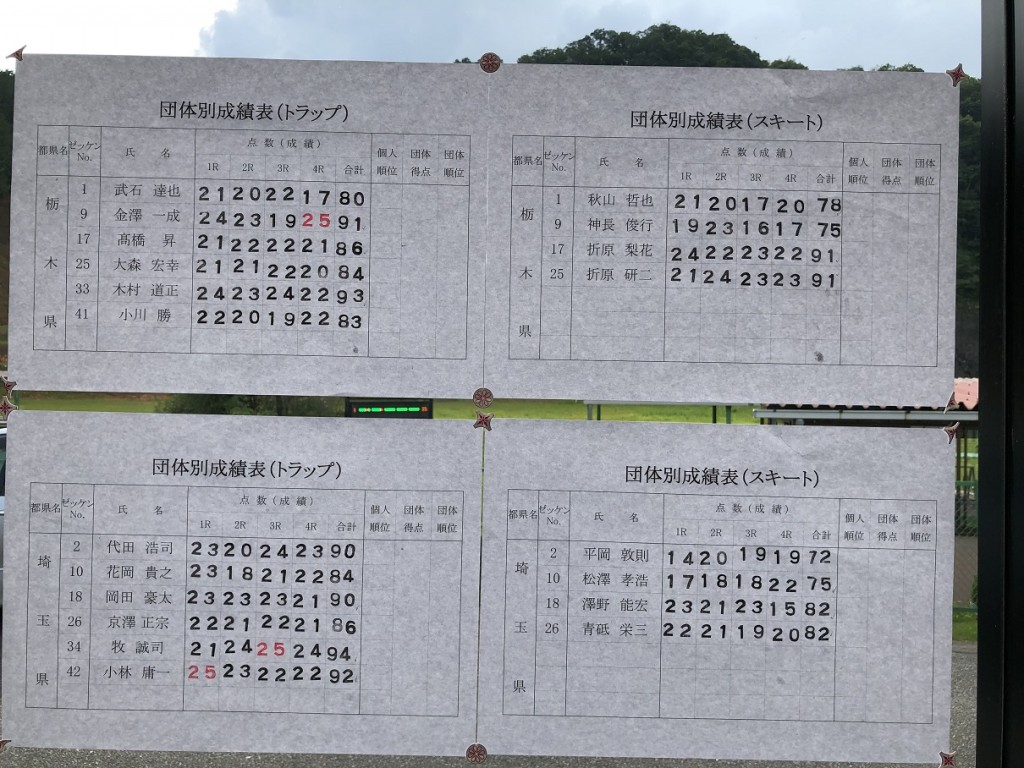 団体別成績表(トラップ)
都県名 ゼッケンNo. 氏 名 点 数 (成 績) 個人順位 団体得点 団体順位
1R 2R 3R 4R 合計
栃木県
1 武石 達也 21 20 22 17 80
9 金澤 一成 24 23 19 25 91
17 髙橋 昇 21 22 22 21 86
25 大森 宏幸 21 21 22 20 84
33 木村 道正 24 23 24 22 93
41 小川 勝 22 20 19 22 83
団体別成績表(スキート)
都県名 ゼッケンNo. 氏 名 点 数 (成 績) 個人順位 団体得点 団体順位
1R 2R 3R 4R 合計
栃木県
1 秋山 哲也 21 20 17 20 78
9 神長 俊行 19 23 16 17 75
17 折原 梨花 24 22 23 22 91
25 折原 研二 21 24 23 23 91
団体別成績表(トラップ)
都県名 ゼッケンNo. 氏 名 点 数 (成 績) 個人順位 団体得点 団体順位
1R 2R 3R 4R 合計
埼玉県
2 代田 浩司 23 20 24 23 90
10 花岡 貴之 23 18 21 22 84
18 岡田 豪太 23 23 23 21 90
26 京澤 正宗 22 21 22 21 86
34 牧 誠司 21 24 25 24 94
42 小林 庸一 25 23 22 22 92
団体別成績表(スキート)
都県名 ゼッケンNo. 氏 名 点 数 (成 績) 個人順位 団体得点 団体順位
1R 2R 3R 4R 合計
埼玉県
2 平岡 敦則 14 20 19 19 72
10 松澤 孝浩 17 18 18 22 75
18 澤野 能宏 23 21 23 15 82
26 青砥 栄三 22 21 19 20 82